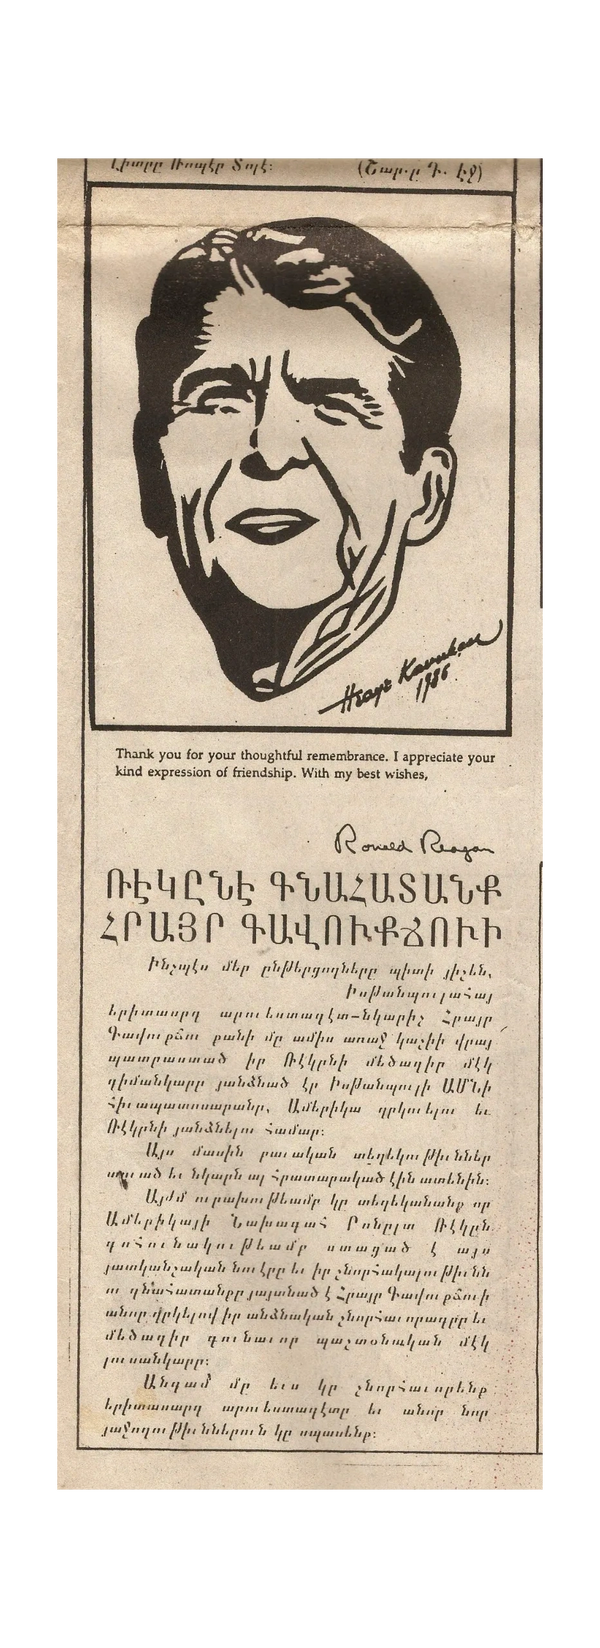 Լիտըը Ռոպէր Տոլէ։ (Շար.ը Դ. էջ)
Hrayr
1986
Thank you for your thoughtful remembrance. I appreciate your
kind expression of friendship. With my best wishes,
Ronald Reagan
ՌԷԿԸՆԷ ԳՆԱՀԱՏԱՆՔ
ՀՐԱՅՐ ԳԱՎՈՒՔՃՈՒԻ
Ինչպէս մեր ընթերցողները պիտի յիշեն,
Իսթանպուլահայ
երիտասարդ արուեստագէտ-նկարիչ Հրայր
Գավուքճու քանի մը ամիս առաջ կաշիի վրայ
պատրաստած իր Ռէկընի մեծադիր մէկ
դիմանկարը յանձնած էր Իսթանպուլի ԱՄՆի
Հիւպատոսարանը, Ամերիկա ղրկուելու եւ
Ռէկընի յանձնելու համար։
Այս մասին բաւական տեղեկութիւններ
տուած եւ նկարն ալ հրատարակած էին ատենին։
Այժմ ուրախութեամբ կը տեղեկանանք որ
Ամերիկայի Նախագահ Րոնըլտ Ռէկըն
գոհունակութեամբ ստացած է այս
յատկանշական նուէրը եւ իր շնորհակալութիւնն
ու գնահատանքը յայտնած է Հրայր Գավուքճուի
անոր ղրկելով իր անձնական շնորհաւորագիրը եւ
մեծադիր գունաւոր պաշտօնական մէկ
լուսանկարը։
Անգամ մը եւս կը շնորհաւորենք
երիտասարդ արուեստագէտը եւ անոր նոր
յաջողութիւններուն կը սպասենք։